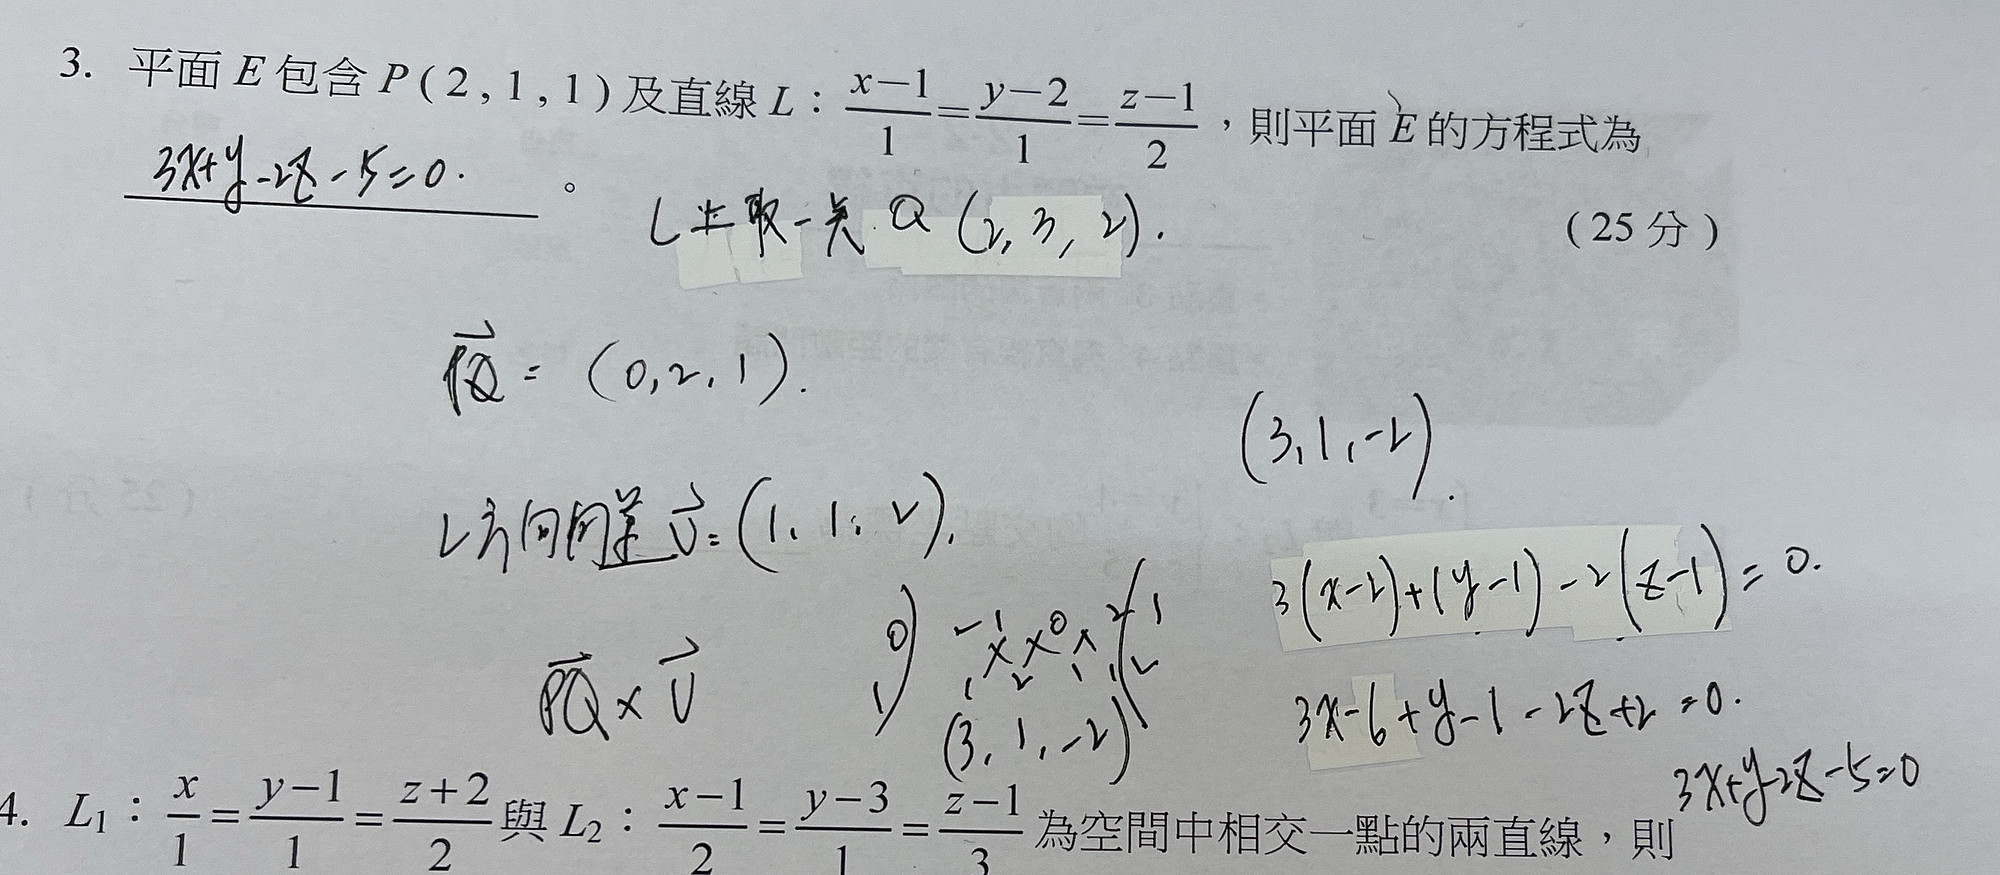 3. 平面 E 包含 P ( 2 , 1 , 1 ) 及直線 L : (x-1)/1 = (y-2)/1 = (z-1)/2 ,則平面 E 的方程式為
3x+y-2z-5=0. 。
(25 分)
L上取一点 Q (2, 3, 2).
PQ = (0, 2, 1).
(3, 1, -2).
L方向向量 v = (1, 1, 2).
3(x-2)+(y-1)-2(z-1)=0.
PQ × v
(3, 1, -2)
3x-6+y-1-2z+2=0.
3x+y-2z-5=0
4. L₁ : x/1 = (y-1)/1 = (z+2)/2 與 L₂ : (x-1)/2 = (y-3)/1 = (z-1)/3 為空間中相交一點的兩直線,則